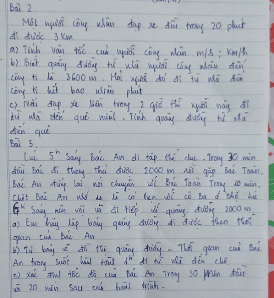 Bài 2
Một người công nhân đạp xe đều trong 20 phút
đi được 3 Km
a) Tính vận tốc của người công nhân m/s ; Km/h
b) Biết quãng đường từ nhà người công nhân đến
công ti là 3600 m. Hỏi người đó đi từ nhà đến
công ti hết bao nhiêu phút
c) Nếu đạp xe liền trong 2 giờ thì người này đi
từ nhà đến quê mình. Tính quãng đường từ nhà
đến quê
Bài 3.
Lúc 5h Sáng Bác An đi tập thể dục. Trong 30 min
đầu Bác đi thong thả được 2000 m rồi gặp Bác Toàn,
Bác An dừng lại nói chuyện với Bác Toàn Trong 10 min.
Chợt Bác An nhớ ra là có hẹn với
6h Sáng nên vội vã đi tiếp về quãng đường 2000 m
a) Em hãy lập bảng quãng đường đi được theo thời
gian của Bác An
b) Từ bảng vẽ đồ thị quãng đường - Thời gian của Bác
An trong suốt hành trình đi từ nhà đến chỗ
c) xác định tốc độ của Bác An Trong 30 phút đầu
và 20 min sau của hành trình.